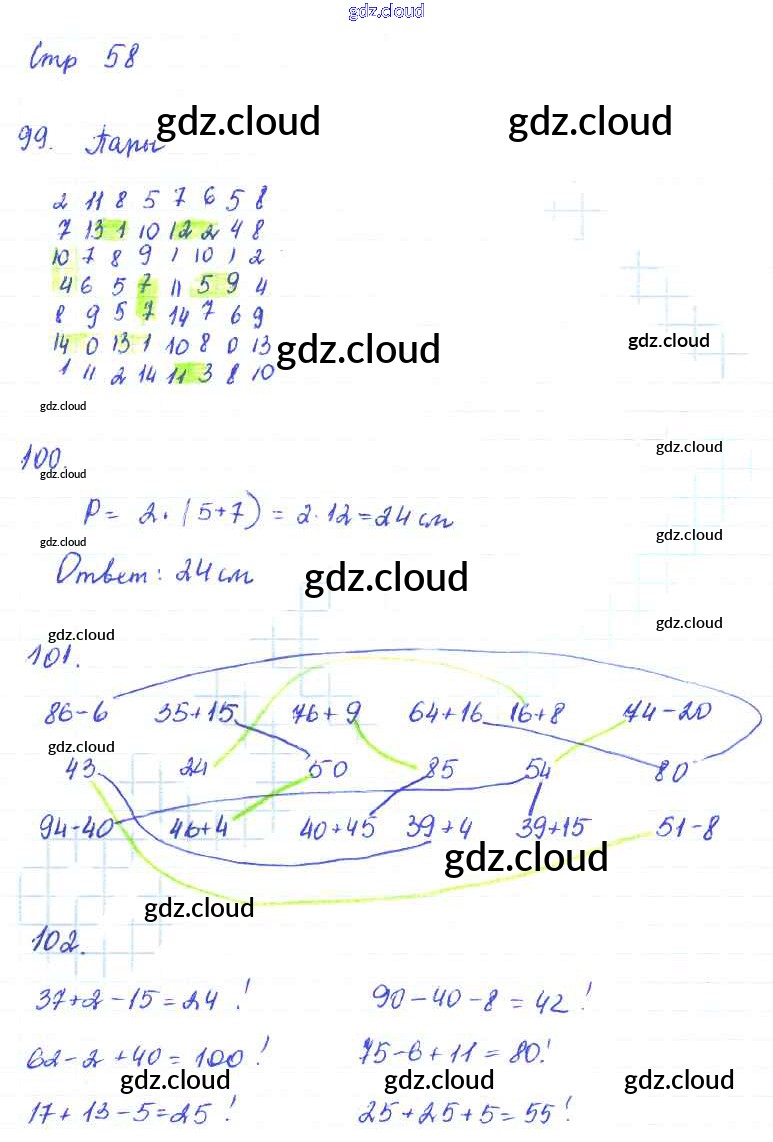 gdz.cloud
Стр 58
gdz.cloud gdz.cloud
99. Пары
2 11 8 5 7 6 5 8
7 13 1 10 12 2 4 8
10 7 8 9 1 10 1 2
4 6 5 7 11 5 9 4
8 9 5 7 14 7 6 9
gdz.cloud
14 0 13 1 10 8 0 13
gdz.cloud
1 11 2 14 11 3 8 10
gdz.cloud
gdz.cloud
100.
gdz.cloud
P = 2 · (5+7) = 2 · 12 = 24 см
gdz.cloud gdz.cloud
Ответ: 24 см
gdz.cloud
gdz.cloud gdz.cloud
101.
86-6 35+15 76+9 64+16 16+8 74-20
gdz.cloud
43 24 50 85 54 80
94-40 46+4 40+45 39+4 39+15 51-8
gdz.cloud
gdz.cloud
102.
37+2-15=24! 90-40-8=42!
62-2+40=100! 75-6+11=80!
gdz.cloud gdz.cloud gdz.cloud
17+13-5=25! 25+25+5=55!